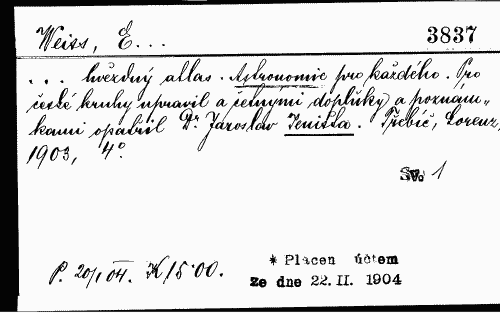 Weiss, E...
3837
... hvězdný atlas. Astronomie pro každého. Pro
české kruhy upravil a četnými doplňky a poznám-
kami opatřil Dr Jaroslav Jeništa. Třebíč, Lorenz,
1903, 4°.
Sv. 1
P. 20/I 04. K 15·00.
* Placen účtem
ze dne 22. II. 1904